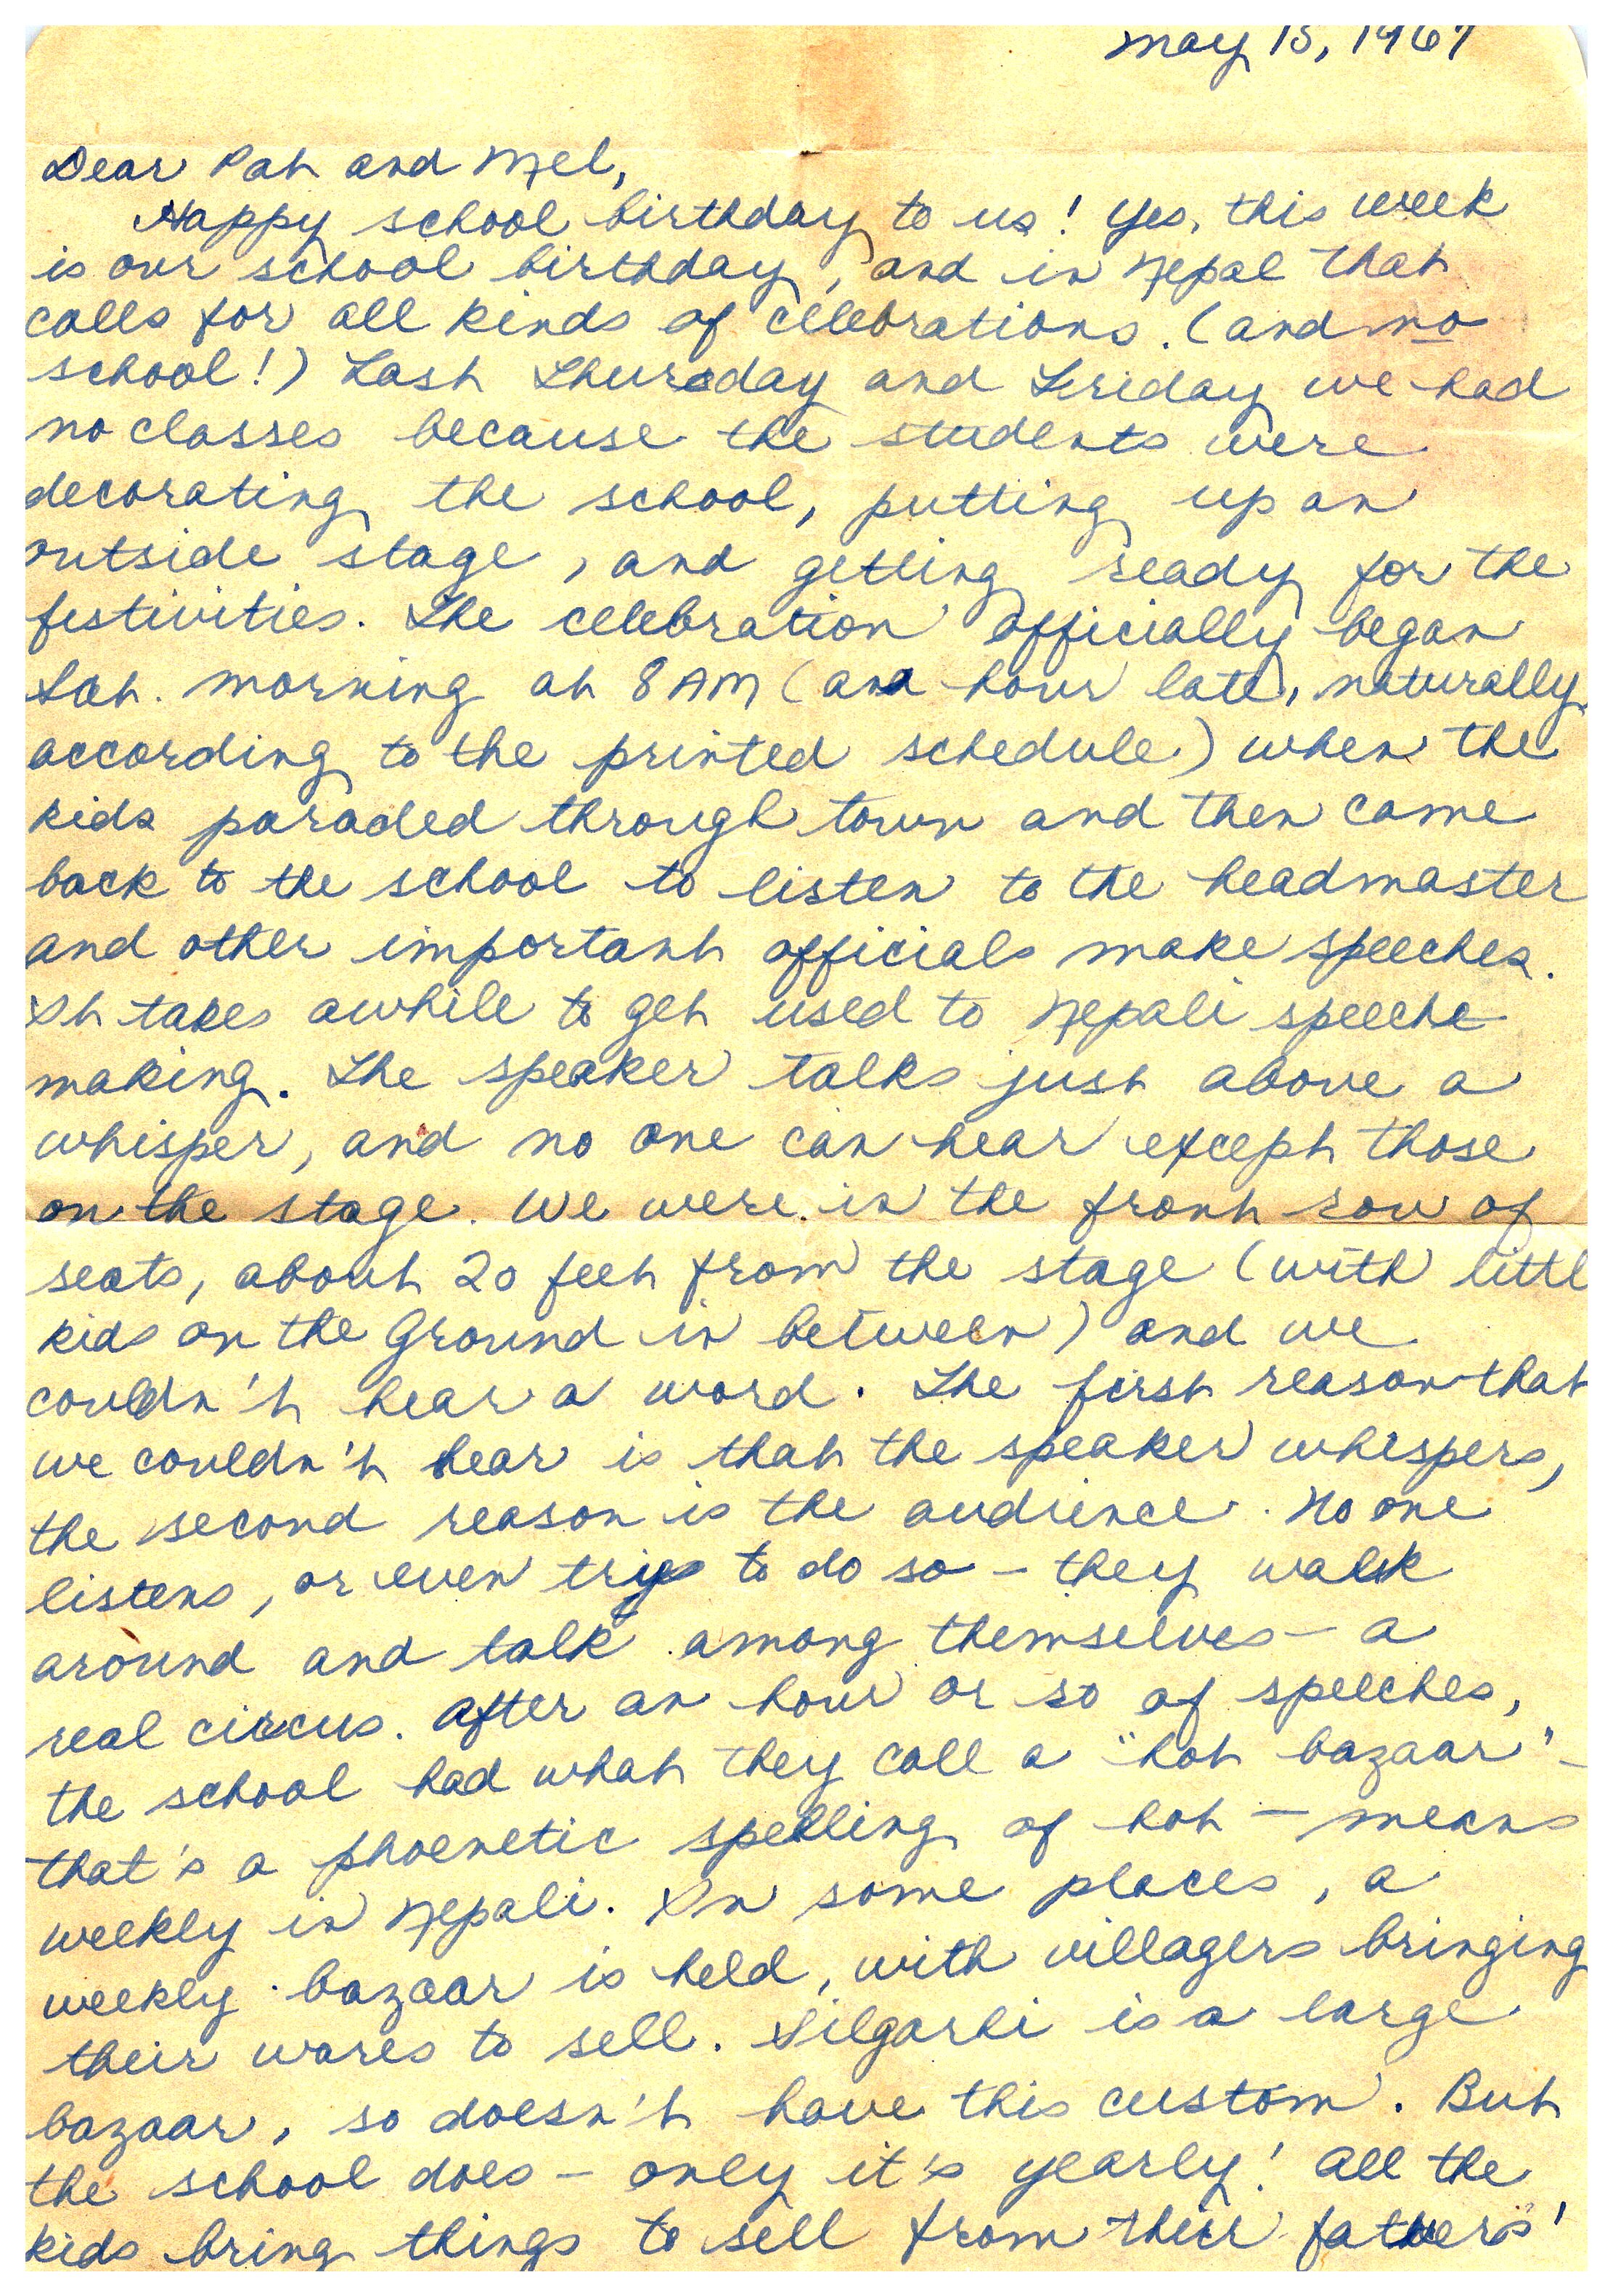 May 15, 1967
Dear Pat and Mel,
Happy school birthday to us! Yes, this week
is our school birthday, and in Nepal that
calls for all kinds of celebrations. (and no
school!) Last Thursday and Friday we had
no classes because the students were
decorating the school, putting up an
outside stage, and getting ready for the
festivities. The celebration officially began
Sat. morning at 8 AM (an hour late, naturally
according to the printed schedule) when the
kids paraded through town and then came
back to the school to listen to the headmaster
and other important officials make speeches.
It takes awhile to get used to Nepali speech
making. The speaker talks just above a
whisper, and no one can hear except those
on the stage. We were in the front row of
seats, about 20 feet from the stage (with littl
kids on the ground in between) and we
couldn't hear a word. The first reason that
we couldn't hear is that the speaker whispers,
the second reason is the audience. No one
listens, or even trys to do so – they walk
around and talk among themselves – a
real circus. After an hour or so of speeches,
the school had what they call a "hot bazaar" –
that's a phoenetic spelling of hot – means
weekly in Nepali. In some places, a
weekly bazaar is held, with villagers bringing
their wares to sell. Silgarhi is a large
bazaar, so doesn't have this custom. But
the school does – only it's yearly! All the
kids bring things to sell from their fathers'